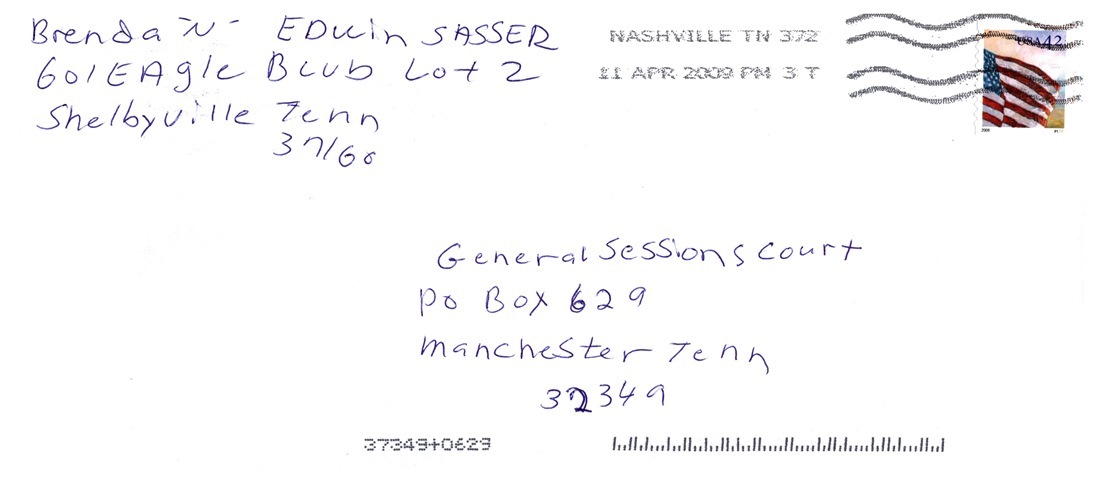 Brenda N EDwin SASSER
601 EAgle BLVD Lot 2
Shelbyville Tenn
37160
NASHVILLE TN 372
11 APR 2009 PM 3 T
USA 42
General Sessions Court
PO Box 629
Manchester Tenn
32349
37349+0629